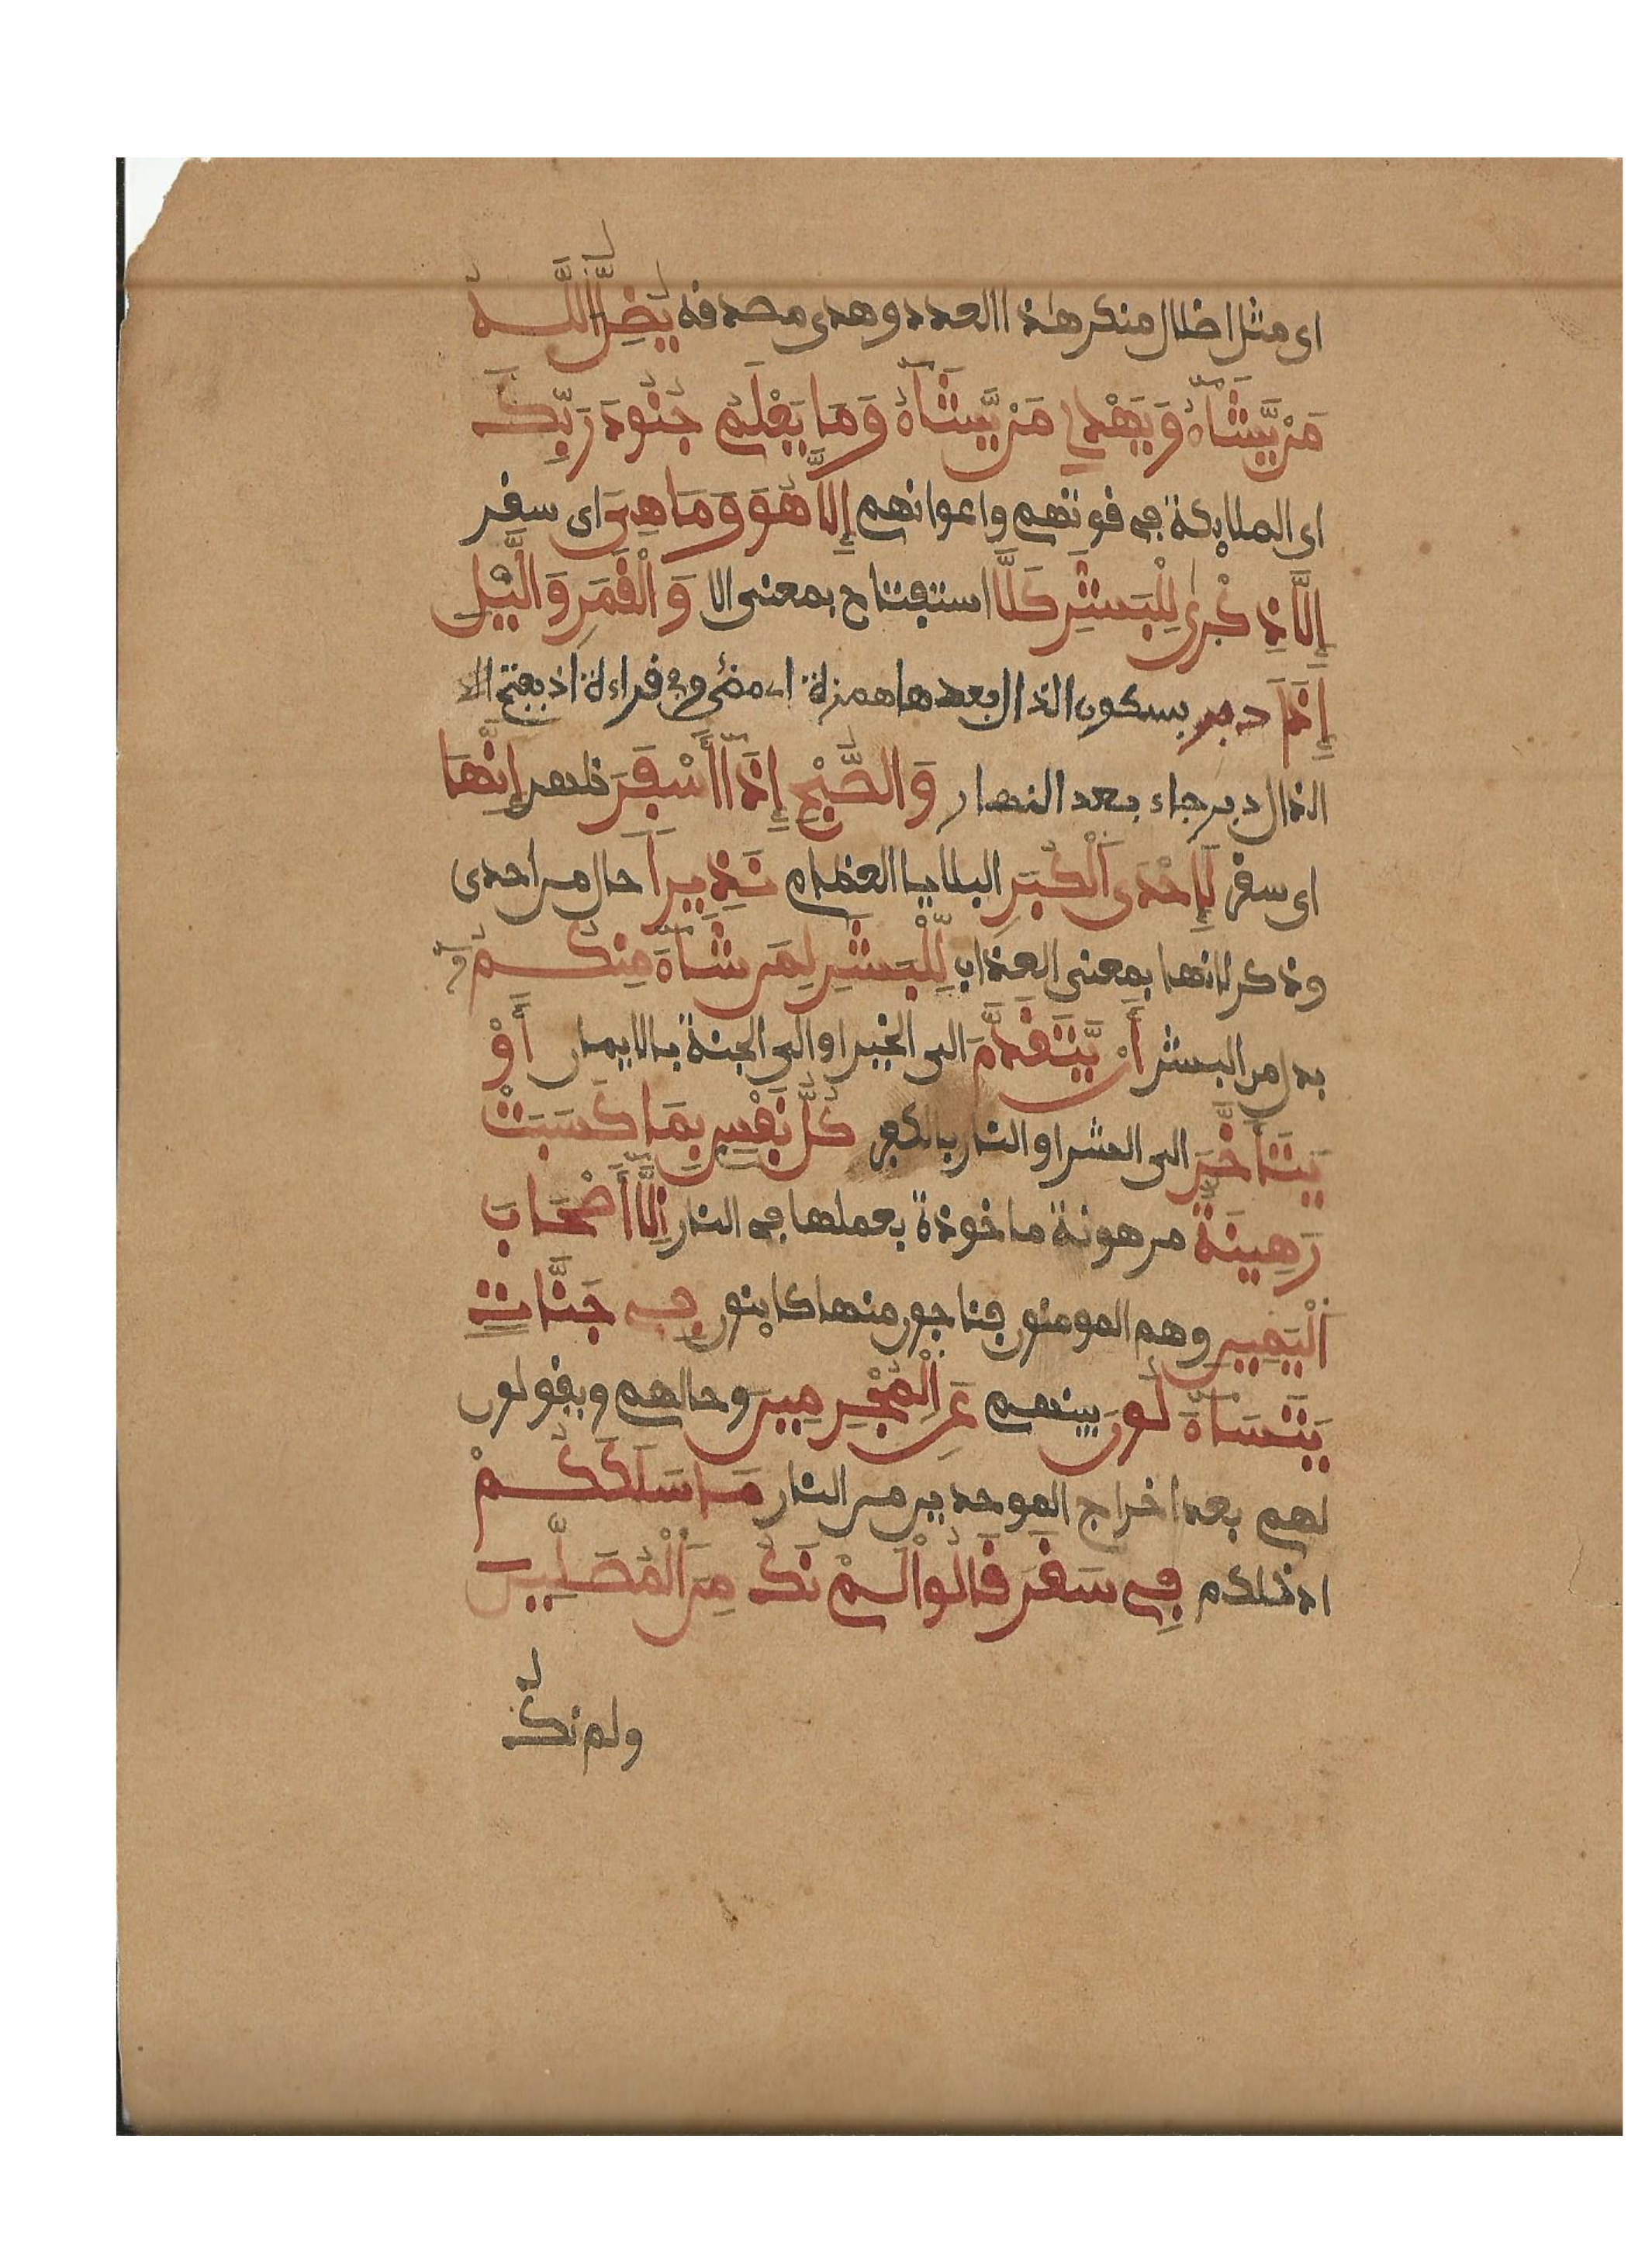 اى مثل اضلال منكر هذا العدد وهدى مصدقه يُضِلُّ اللَّهُ
مَنْ يَّشَآءُ وَيَهْدِے مَنْ يَّشَآءُ وَمَا يَعْلَمُ جُنُودَ رَبِّكَ
اى الملايكة فى قوتهم واعوانهم إِلَّا هُوَ وَمَا هِىَ اى سقر
إِلَّا ذِكْرَىٰ لِلْبَشَرِ كَلَّا استفتاح بمعنى الا وَالْقَمَرِ وَالَّيْلِ
إِذَا دبر بسكون الذال بعدها همزة اى مضى وفى قراءة اذ بفتح الذ
الذال دبر جاء بعد النهار وَالصُّبْحِ إِذَآ أَسْفَرَ ظهر إِنَّهَا
اى سقر لَإِحْدَى ٱلْكُبَرِ البلايا العظام نَذِيراً حال من احدى
وذكر لانها بمعنى العذاب لِّلْبَشَرِ لِمَن شَآءَ مِنكُمُۥٓ
بدل من البشر أَنْ يَّتَقَدَّمَ الى الخير او الى الجنة بالايمان أَوْ
يَتَأَخَّرَ الى الشر او النار بالكفر كُلُّ نَفْسٍ بِمَا كَسَبَتْ
رَهِينَةٌ مرهونة ماخوذة بعملها فى النار إِلَّآ أَصْحَابَ
ٱلْيَمِينِ وهم المومنون فناجون منها كاينون فِے جَنَّاتٍ
يَتَسَآءَلُونَ بينهم عَنِ ٱلْمُجْرِمِينَ وحالهم ويقولون
لهم بعد اخراج الموحدين من النار مَا سَلَكَكُمْ
ادخلكم فِے سَقَرَ قَالُوا لَمْ نَكُ مِنَ ٱلْمُصَلِّينَ
ولم نكُ